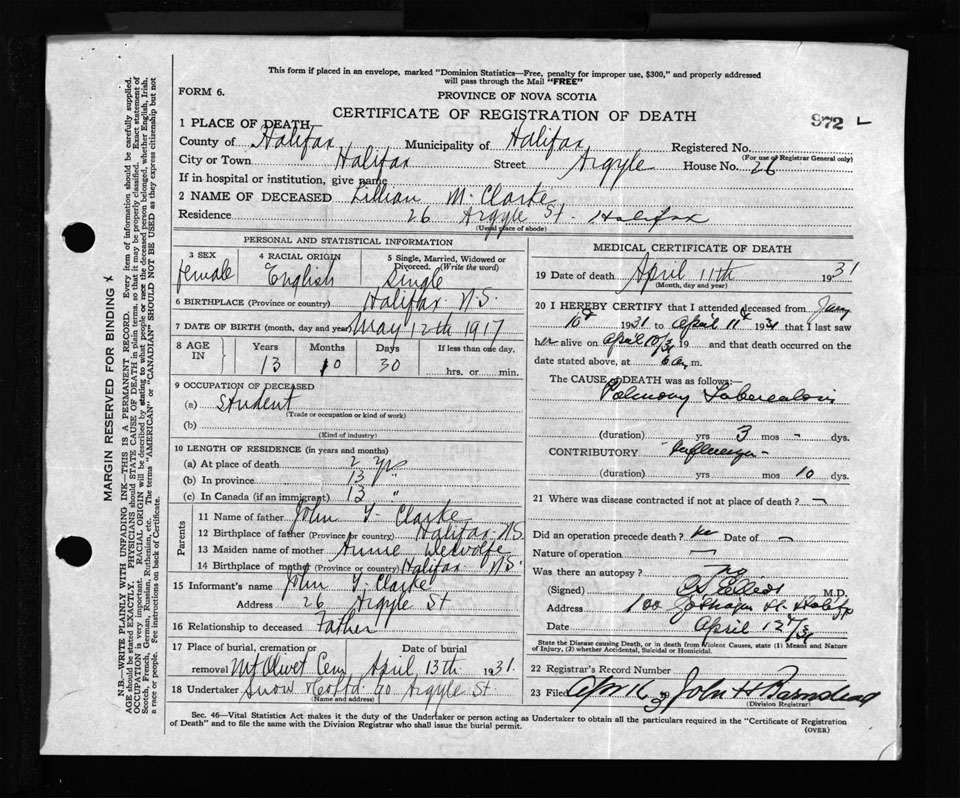 This form if placed in an envelope, marked "Dominion Statistics—Free, penalty for improper use, $300," and properly addressed
will pass through the Mail "FREE"
FORM 6.
PROVINCE OF NOVA SCOTIA
CERTIFICATE OF REGISTRATION OF DEATH
972
1 PLACE OF DEATH—
County of Halifax Municipality of Halifax Registered No.
(For use of Registrar General only)
City or Town Halifax Street Argyle House No. 26
If in hospital or institution, give name
2 NAME OF DECEASED Lillian M. Clarke
Residence 26 Argyle St. Halifax
(Usual place of abode)
PERSONAL AND STATISTICAL INFORMATION
3 SEX
female
4 RACIAL ORIGIN
English
5 Single, Married, Widowed or
Divorced. (Write the word)
Single
6 BIRTHPLACE (Province or country) Halifax N.S.
7 DATE OF BIRTH (month, day and year) May 12th 1917
8 AGE IN Years Months Days If less than one day,
13 10 30 hrs. or min.
9 OCCUPATION OF DECEASED
(a) Student
(Trade or occupation or kind of work)
(b)
(Kind of industry)
10 LENGTH OF RESIDENCE (in years and months)
(a) At place of death 2 yr
(b) In province 13 "
(c) In Canada (if an immigrant) 13 "
Parents
11 Name of father John Y. Clarke
12 Birthplace of father (Province or country) Halifax N.S.
13 Maiden name of mother Annie Dewolfe
14 Birthplace of mother (Province or country) Halifax N.S.
15 Informant's name John Y. Clarke
Address 26 Argyle St
16 Relationship to deceased Father
17 Place of burial, cremation or Date of burial
removal Mt Olivet Cem April 13th 1931.
18 Undertaker Snow &Co Ltd 90 Argyle St.
(Name and address)
MEDICAL CERTIFICATE OF DEATH
19 Date of death April 11th 1931
(Month, day and year)
20 I HEREBY CERTIFY that I attended deceased from Jany
16th 1931 to April 11th 1931 that I last saw
her alive on April 10/31 19 and that death occurred on the
date stated above, at 6 a.m.
The CAUSE OF DEATH was as follows:—
Pulmony Tuberculosis
(duration) yrs 3 mos - dys.
CONTRIBUTORY Influenza
(duration) yrs mos 10 dys.
21 Where was disease contracted if not at place of death? —
Did an operation precede death? no Date of —
Nature of operation —
Was there an autopsy? no
(Signed) M.D.
Address 100 St. Halifax
Date April 12th/31
State the Disease causing Death, or in death from Violent Causes, state (1) Means and Nature
of Injury, (2) whether Accidental, Suicidal or Homicidal.
22 Registrar's Record Number
23 Filed Apr 16 31 John H Barnstead
(Division Registrar)
Sec. 46—Vital Statistics Act makes it the duty of the Undertaker or person acting as Undertaker to obtain all the particulars required in the "Certificate of Registration
of Death" and to file the same with the Division Registrar who shall issue the burial permit.
(OVER)
MARGIN RESERVED FOR BINDING
N.B.—WRITE PLAINLY WITH UNFADING INK—THIS IS A PERMANENT RECORD. Every item of information should be carefully supplied.
AGE should be stated EXACTLY. PHYSICIANS should STATE CAUSE OF DEATH in plain terms, so that it may be properly classified. Exact statement of
OCCUPATION is very important. RACIAL ORIGIN will be described by stating to what people or race the deceased person belonged, whether English, Irish,
Scotch, French, German, Russian, Ruthenian, etc. The terms "AMERICAN" or "CANADIAN" SHOULD NOT BE USED as they express citizenship but not
a race or people. See instructions on back of Certificate.